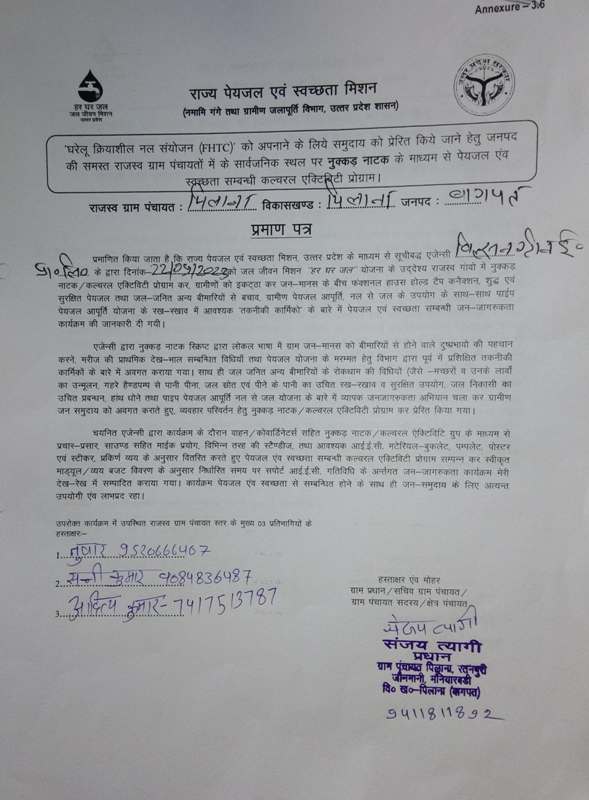 Annexure – 3.6
हर घर जल
जल जीवन मिशन
उत्तर प्रदेश
राज्य पेयजल एवं स्वच्छता मिशन
(नमामि गंगे तथा ग्रामीण जलापूर्ति विभाग, उत्तर प्रदेश शासन)
'घरेलू क्रियाशील नल संयोजन (FHTC)' को अपनाने के लिये समुदाय को प्रेरित किये जाने हेतु जनपद
की समस्त राजस्व ग्राम पंचायतों में के सार्वजनिक स्थल पर नुक्कड़ नाटक के माध्यम से पेयजल एंव
स्वच्छता सम्बन्धी कल्चरल एक्टिविटी प्रोग्राम।
राजस्व ग्राम पंचायत : पिलाना विकासखण्ड : पिलाना जनपद : बागपत
प्रमाण पत्र
प्रमाणित किया जाता है, कि राज्य पेयजल एवं स्वच्छता मिशन, उत्तर प्रदेश के माध्यम से सूचीबद्ध एजेन्सी
प्रा० लि० के द्वारा दिनांक-22/09/2023 को जल जीवन मिशन "हर घर जल" योजना के उद्देश्य राजस्व गांवों में नुक्कड़
नाटक/कल्वरल एक्टिविटी प्रोग्राम कर, ग्रामीणों को इकट्ठा कर जन-मानस के बीच फंक्शनल हाउस होल्ड टैप कनेक्शन, शुद्ध एवं
सुरक्षित पेयजल तथा जल-जनित अन्य बीमारियों से बचाव, ग्रामीण पेयजल आपूर्ति, नल से जल के उपयोग के साथ-साथ पाईप
पेयजल आपूर्ति योजना के रख-रखाव में आवश्यक 'तकनीकी कार्मिकों' के बारे में पेयजल एवं स्वच्छता सम्बन्धी जन-जागरुकता
कार्यक्रम की जानकारी दी गयी।
एजेन्सी द्वारा नुक्कड़ नाटक स्क्रिप्ट द्वारा लोकल भाषा में ग्राम जन-मानस को बीमारियों से होने वाले दुष्प्रभावो की पहचान
करने, मरीज की प्राथमिक देख-भाल सम्बन्धित विधियॉ तथा पेयजल योजना के मरम्मत हेतु विभाग द्वारा पूर्व में प्रशिक्षित तकनीकी
कार्मिकों के बारे में अवगत कराया गया। साथ ही जल जनित अन्य बीमारियों के रोकथाम की विधियॉ (जैसे -मच्छरों व उनके लार्वा
का उन्मूलन, गहरे हैण्डपम्प से पानी पीना, जल स्रोत एवं पीने के पानी का उचित रख-रखाव व सुरक्षित उपयोग, जल निकासी का
उचित प्रबधान, हांथ धोने तथा पाइप पेयजल आपूर्ति नल से जल योजना के बारे में व्यापक जनजागरुकता अभियान चला कर ग्रामीण
जन समुदाय को अवगत कराते हुए, व्यवहार परिवर्तन हेतु नुक्कड़ नाटक/कल्वरल एक्टिविटि प्रोग्राम कर प्रेरित किया गया।
चयनित एजेन्सी द्वारा कार्यक्रम के दौरान वाहन/कोवार्डिनेटर्स सहित नुक्कड़ नाटक/कल्वरल ऐक्टिविटि ग्रुप के माध्यम से
प्रचार-प्रसार, साउण्ड सहित माईक प्रयोग, विभिन्न तरह की स्टैण्डीज, तथा आवश्यक आई.ई.सी. मटेरियल-बुकलेट, पम्पलेट, पोस्टर
एवं स्टीकर, प्रकिर्ण व्यय के अनुसार वितरित करते हुए पेयजल एवं स्वच्छता सम्बन्धी कल्चरल एक्टिविटी प्रोग्राम सम्पन्न कर स्वीकृत
माड्यूल/व्यय बजट विवरण के अनुसार निर्धारित समय पर सपोर्ट आई.ई.सी. गतिविधि के अर्न्तगत जन-जागरुकता कार्यक्रम मेरी
देख-रेख में सम्पादित कराया गया। कार्यक्रम पेयजल एंव स्वच्छता से सम्बन्धित होने के साथ ही जन-समुदाय के लिए अत्यन्त
उपयोगी एंव लाभप्रद रहा।
उपरोक्त कार्यक्रम में उपस्थित राजस्व ग्राम पंचायत स्तर के मुख्य 03 प्रतिभागियों के
हस्ताक्षर:-
1. तुषार 9520666407
2. सन्नी कुमार 9084836487
3. आदित्य कुमार- 7417513787
हस्ताक्षर एंव मोहर
ग्राम प्रधान/सचिव ग्राम पंचायत/
ग्राम पंचायत सदस्य/क्षेत्र पंचायत
संजय त्यागी
संजय त्यागी
प्रधान
ग्राम पंचायत पिलाना, रतनपुरी
वि० ख०-पिलाना (बागपत)
9411811892